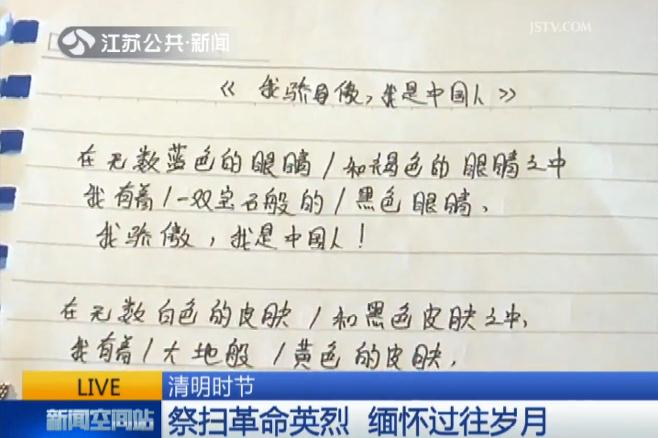 江苏公共·新闻
JSTV.COM
《我骄自傲，我是中国人》
在无数蓝色的眼睛/和褐色的眼睛之中
我有着/一双宝石般的/黑色眼睛、
我骄傲，我是中国人！
在无数白色的皮肤/和黑色皮肤之中、
我有着/大地般/黄色的皮肤，
LIVE 清明时节
新闻空间站 祭扫革命英烈 缅怀过往岁月